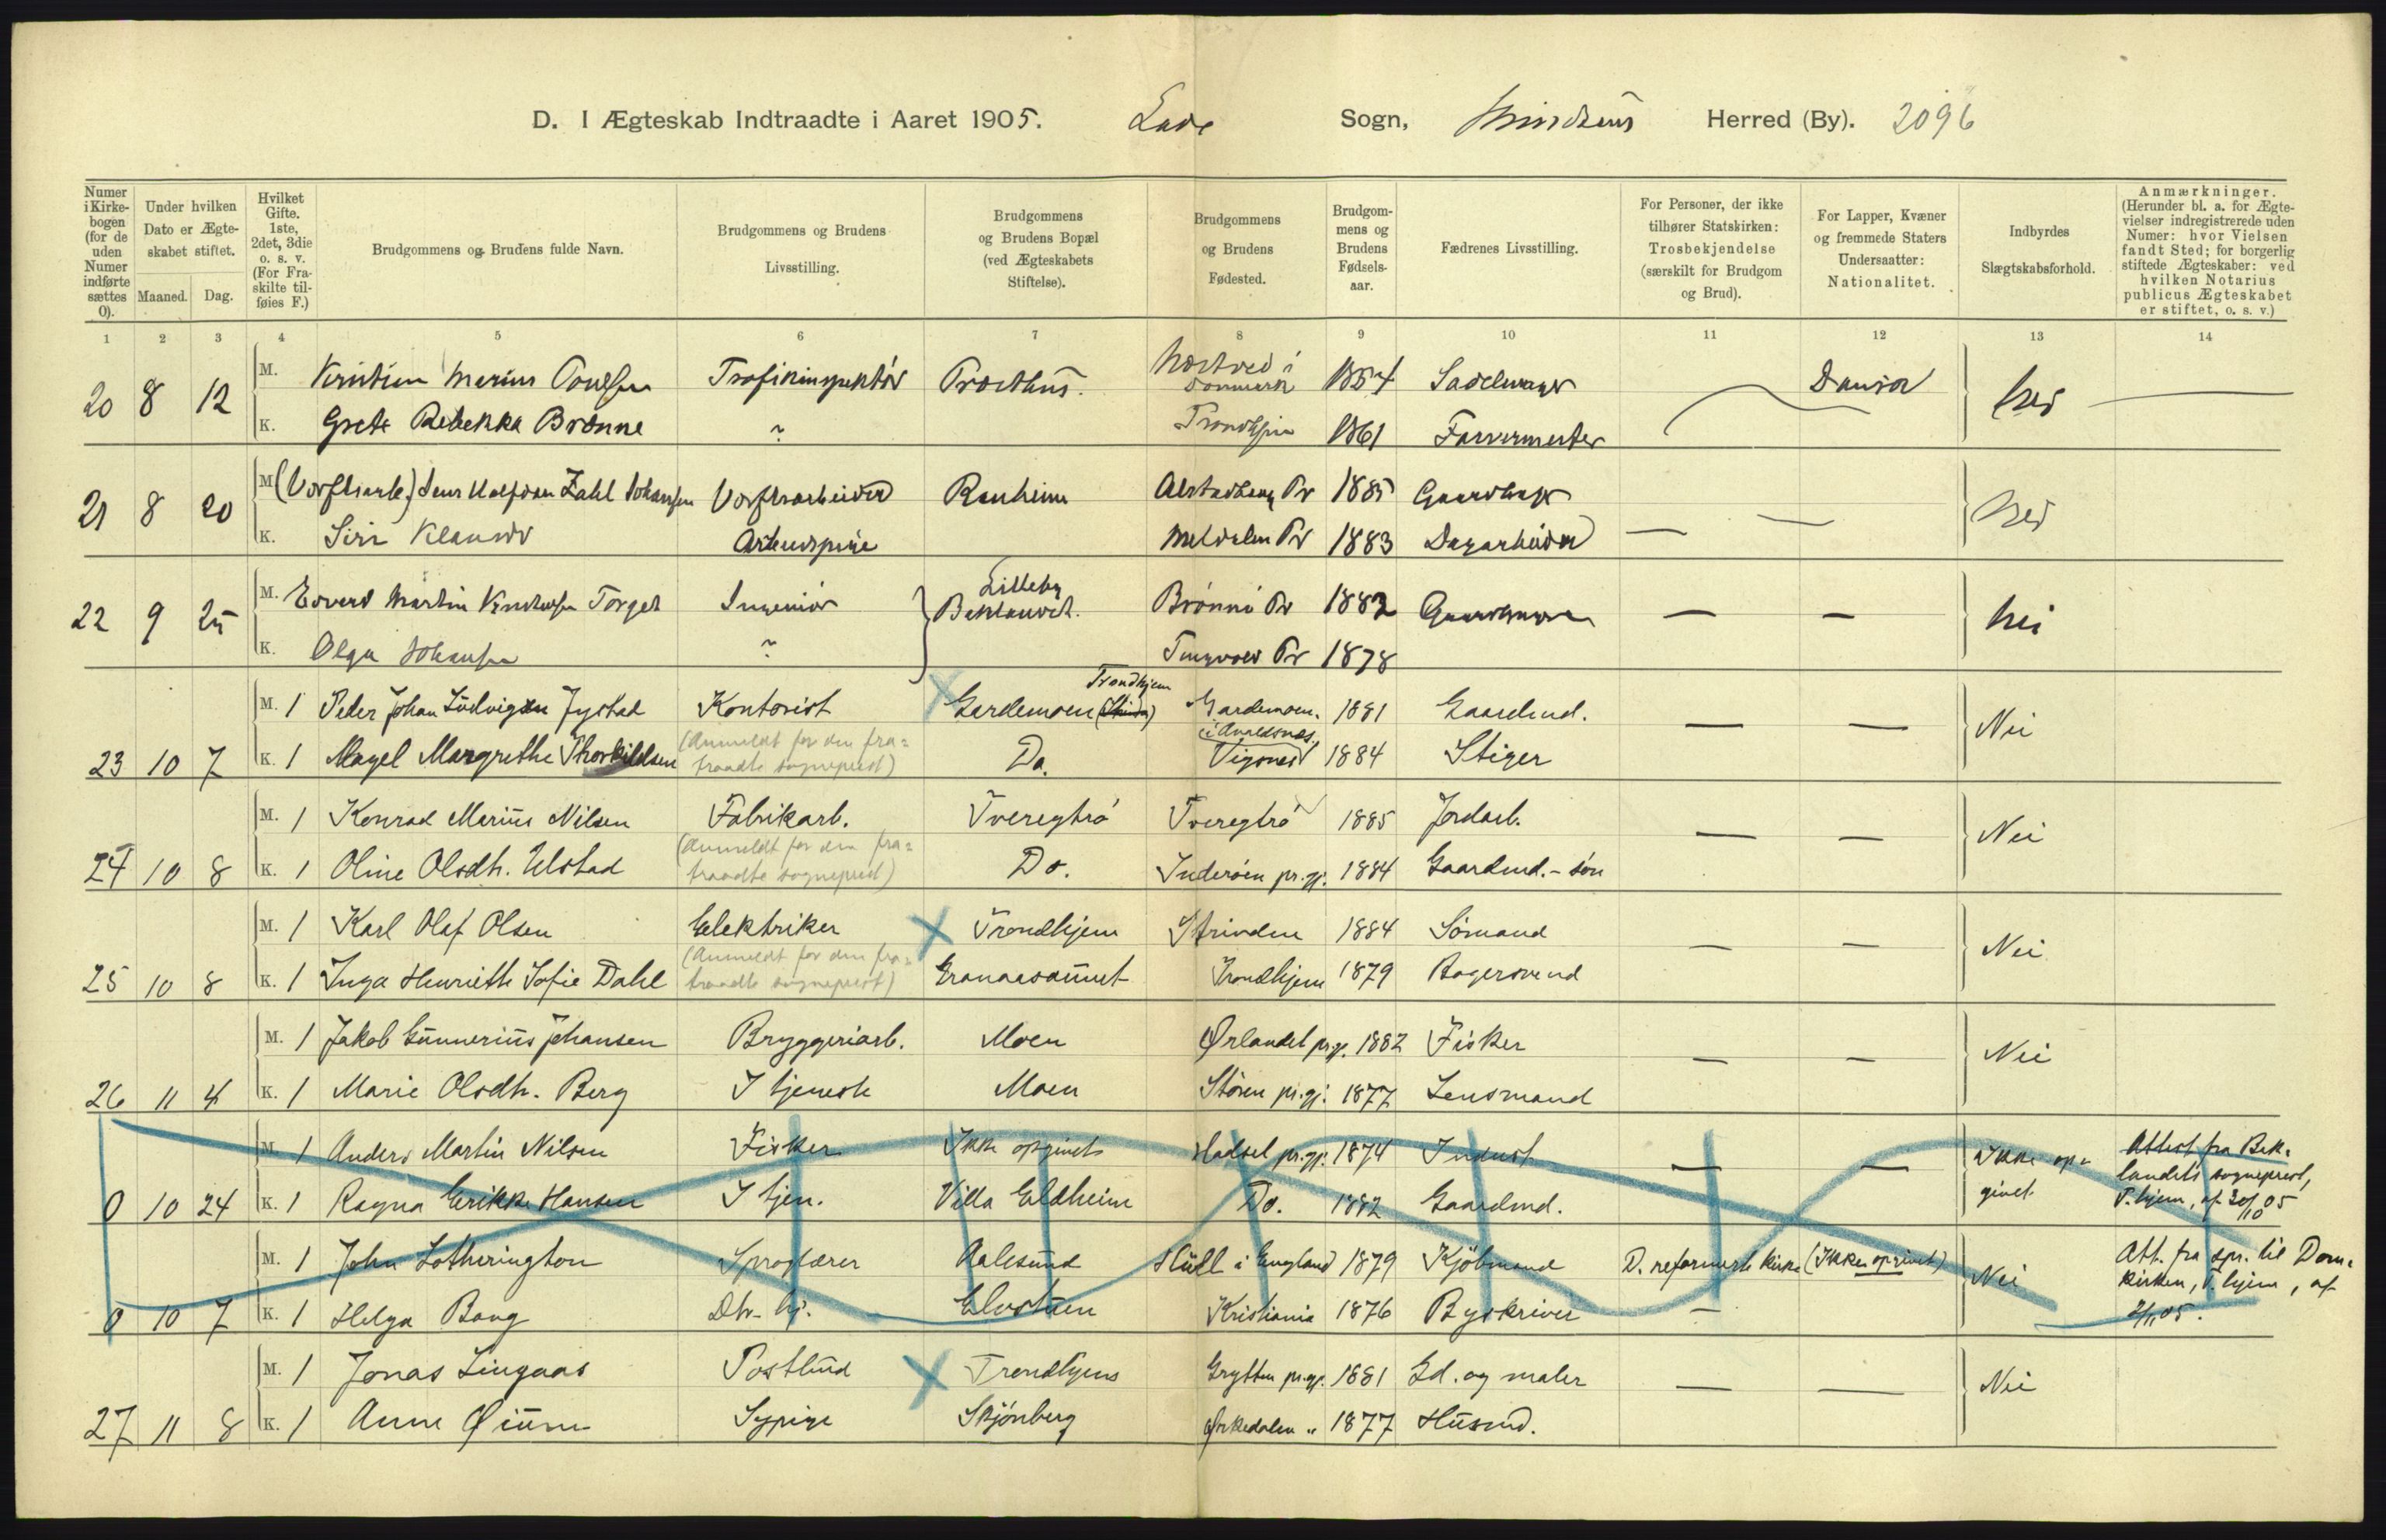 D. I Ægteskab Indtraadte i Aaret 1905. Lade Sogn, Herred (By). 2096
Numer i Kirkebogen (for de uden Numer indførte sættes 0).
Under hvilken Dato er Ægteskabet stiftet.
Maaned. Dag.
Hvilket Gifte. 1ste, 2det, 3die o. s. v. (For Fraskilte tilføies F.)
Brudgommens og Brudens fulde Navn.
Brudgommens og Brudens Livsstilling.
Brudgommens og Brudens Bopæl (ved Ægteskabets Stiftelse).
Brudgommens og Brudens Fødested.
Brudgommens og Brudens Fødselsaar.
Fædrenes Livsstilling.
For Personer, der ikke tilhører Statskirken: Trosbekjendelse (særskilt for Brudgom og Brud).
For Lapper, Kvæner og fremmede Staters Undersaatter: Nationalitet.
Indbyrdes Slægtskabsforhold.
Anmærkninger. (Herunder bl. a. for Ægtevielser indregistrerede uden Numer: hvor Vielsen fandt Sted; for borgerlig stiftede Ægteskaber: ved hvilken Notarius publicus Ægteskabet er stiftet, o. s. v.)
1 2 3 4 5 6 7 8 9 10 11 12 13 14
M. Marius Trafikinspektør 1854 Sadelmager Dansk
20 8 12 K. Grete Rebekka Brønne Trondhjem 1861 Farvermester
M. Jens Zahl Johansen Ranheim 1885
21 8 20 K. Siri Meldalen Pr 1883 Dagarbeider
M. Edvard Martin Torget Ingeniør Lilleby Brønnø Pr 1882 — — Nei
22 9 25 K. Olga Johansen Pr 1878
M. 1 Peder Johan Ludvigsen Jystad Kontorist Gardemoen (Strinda) Trondhjem Gardemoen. 1881 Gaardmd. — — Nei
23 10 7 K. 1 Magel Margrethe Thorkildsen (Anmeldt for den fratraadte sogneprest) Do. Vigsnes i Avaldsnes. 1884 Stiger
M. 1 Konrad Marius Nilsen Fabrikarb. Tveregtrø Tveregtrø 1885 Jordarb. — — Nei
24 10 8 K. 1 Oline Olsdtr. Ulstad (Anmeldt for den fratraadte sogneprest) Do. Inderøen pr.gj. 1884 Gaardmd.-søn
M. 1 Karl Olaf Olsen Elektriker X Trondhjem Strinden 1884 Sømand — — Nei
25 10 8 K. 1 Inga Henriette Sofie Dahl (Anmeldt for den fratraadte sogneprest) Trondhjem 1879 Bagersvend
M. 1 Jakob Gunnerius Johansen Bryggeriarb. Moen Ørlandet pr.gj. 1882 Fisker — — Nei
26 11 4 K. 1 Marie Olsdtr. Berg I tjeneste Moen Støren pr.gj. 1877 Lensmand
M. 1 Anders Martin Nilsen Fisker Ikke opgivet Hadsel pr.gj. 1874 Inderst — — Ikke opgivet. Attest fra Baklandets sogneprest, T.hjem, af 30/10 05
0 10 24 K. 1 Ragna Erikke Hansen I tjen. Villa Eldheim Do. 1882 Gaardmd.
M. 1 John Lotherington Sproglærer Aalesund Hull i England 1879 Kjøbmand D. reformerte kirke (Ikke opgivet) Nei Att. fra spr. til Domkirken, T.hjem, af 2/11 05.
0 10 7 K. 1 Helga Bang Dtr. hj. Kristiania 1876 Byskriver —
M. 1 Jonas Lingaas Postbud X Trondhjem Grytten pr.gj. 1881 Gd. og maler — — Nei
27 11 8 K. 1 Anne Øium Sypige Skjønberg Ørkedalen " 1877 Husmd.